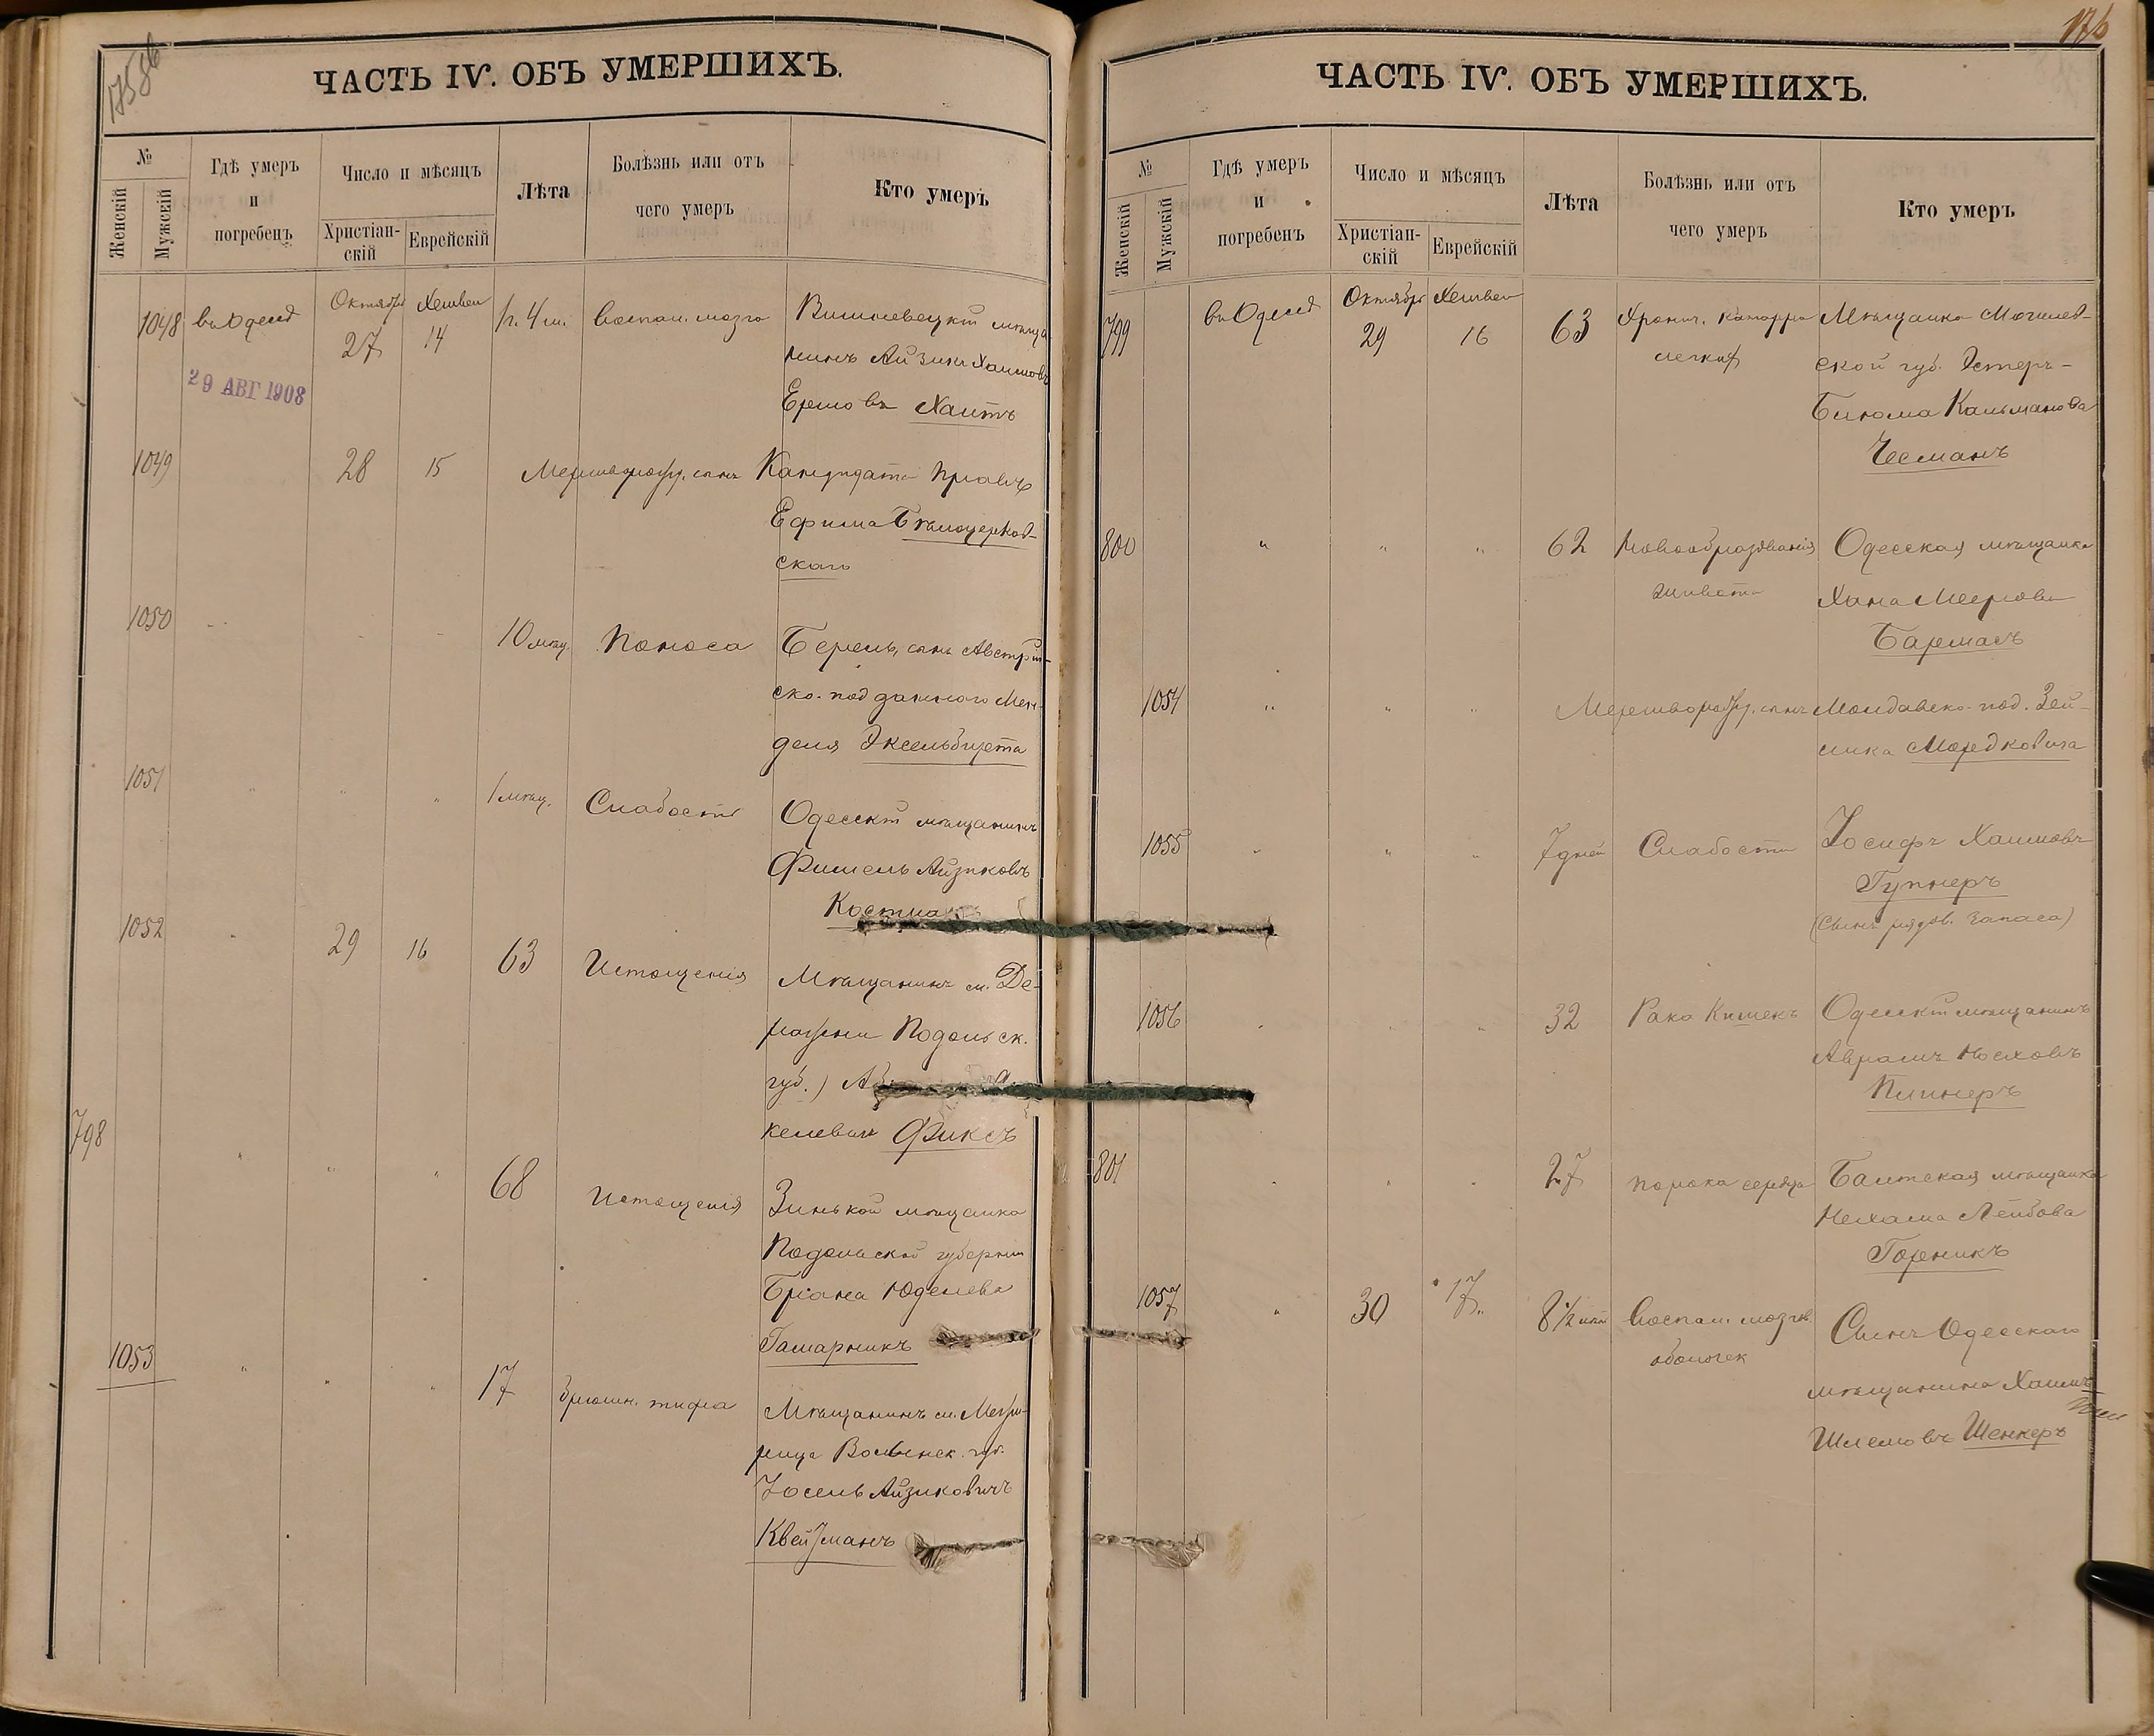 175 об
ЧАСТЬ IV. ОБЪ УМЕРШИХЪ.
№
Женскій
Мужскій
Гдѣ умеръ
и
погребенъ
Число и мѣсяцъ
Христіан-
скій
Еврейскій
Лѣта
Болѣзнь или отъ
чего умеръ
Кто умеръ
1048 въ Одессѣ Октября 27 Хешвен 14 1 г. 4 м. воспал. мозга Вишневецкій мѣща
нинъ Айзикъ Хаимовъ
29 АВГ 1908
Ершовъ Хаитъ
1049 28 15 Мертворожд. сынъ Кандидата Правъ
Ефима Бѣлоцерков-
скаго
1050 10 мѣц. Поноса Берель, сынъ Австрій-
ско-подданного Мен-
деля Эксельбирта
1051 " " " 1 мѣц. Слабости Одесскій мѣщанинъ
Фишель Айзиковъ
Костма
1052 " 29 16 63 Истощенія Мѣщанинъ м. Де-
ражни Подольск.
губ.)
келевичъ Фиксъ
798 " " " 68 Истощенія Зиньков мѣщанка
Подольской губерніи
Бріана Юделева
Гамарникъ
1053 " " " 17 Брюшн. тифа Мѣщанинъ м. Межи-
рица Волынск. губ.
Іосель Айзиковичъ
Квейтманъ
176
ЧАСТЬ IV. ОБЪ УМЕРШИХЪ.
№
Женскій
Мужскій
Гдѣ умеръ
и
погребенъ
Число и мѣсяцъ
Христіан-
скій
Еврейскій
Лѣта
Болѣзнь или отъ
чего умеръ
Кто умеръ
799 въ Одессѣ Октября 29 Хешвен 16 63 Хронич. катарра Мѣщанка Могилев-
легких ской губ. Эстеръ-
Блюма Кальманова
Чесманъ
800 " " " 62 Новообразованія Одесская мѣщанка
живота Хана Меерова
Бармасъ
1054 " " " Мертворожд. сынъ Молдавско-под. Зей-
лика Мордковича
1055 " " " 7 дней Слабости Іосифъ Хаимовъ
Гупнеръ
(Сынъ рядов. запаса)
1056 " " " 32 Рака Кишекъ Одесскій мѣщанинъ
Аврамъ Носховъ
Пипнеръ
801 " " " 27 порока сердца Балтская мѣщанка
Нехама Лейбова
Горникъ
1057 " 30 17 8 1/2 воспал. мозгов. Сынъ Одесскаго
оболочек мѣщанина Хаимъ
Шлемовъ Шенкеръ